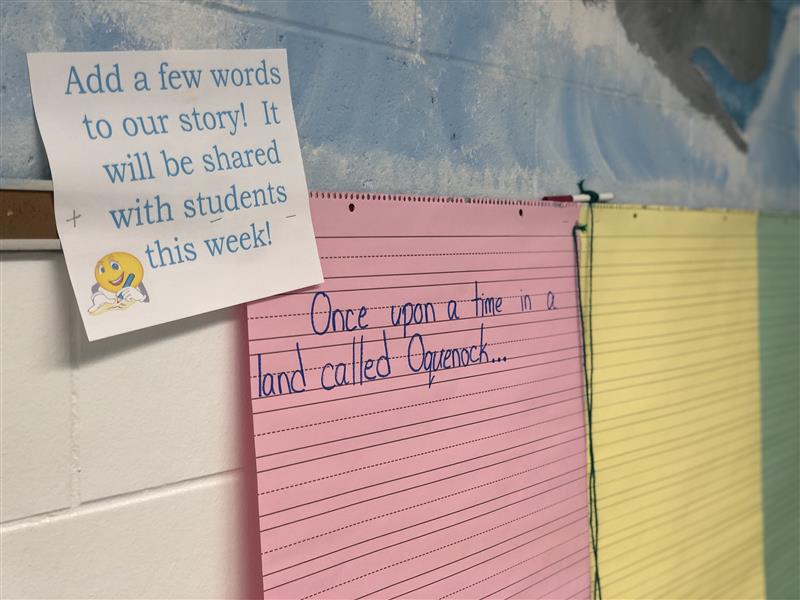 Add a few words
to our story! It
will be shared
with students
this week!
Once upon a time in a
land called Oquenock...